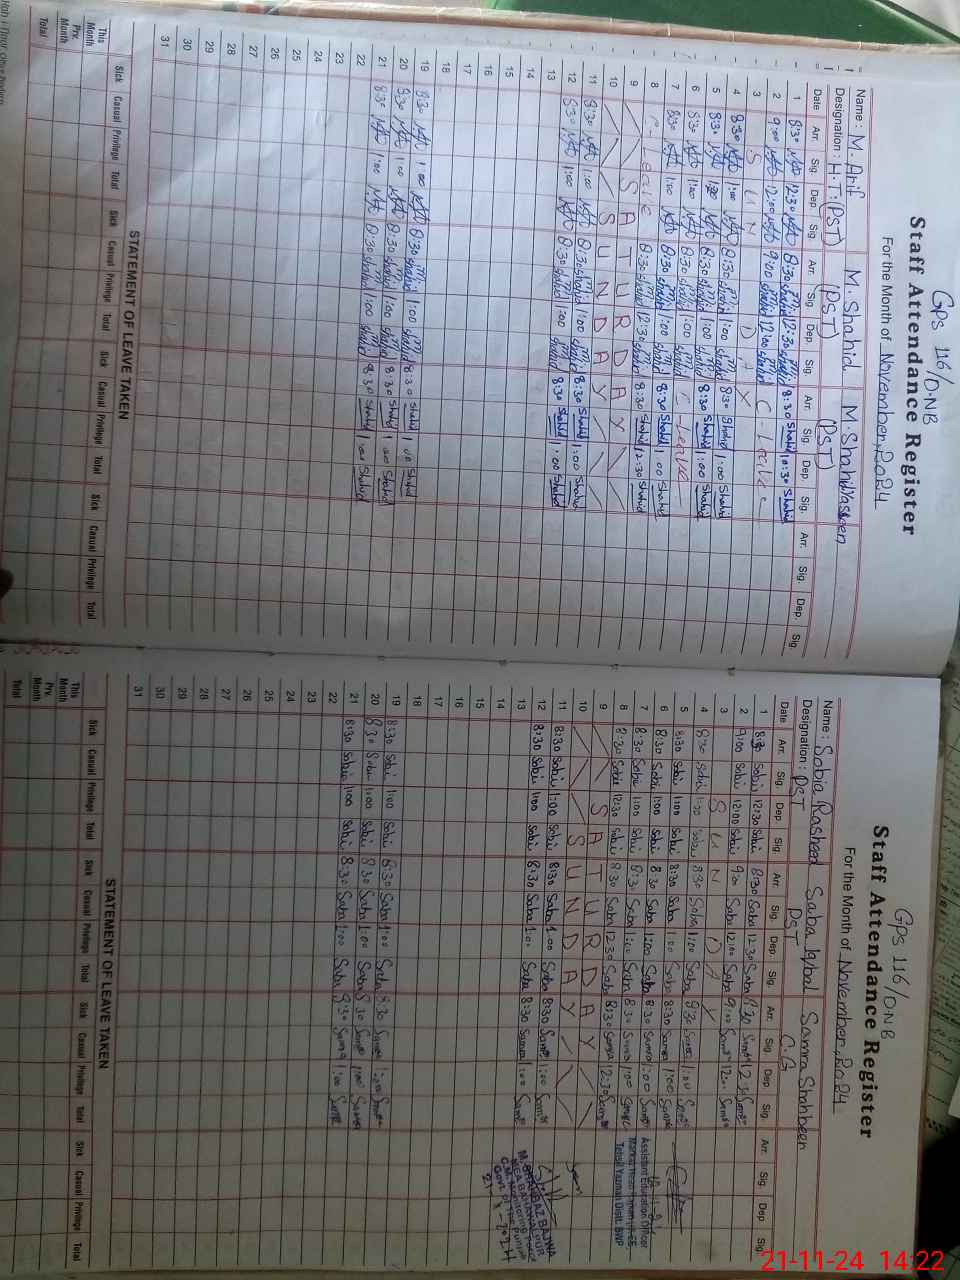 GPS 116/DNB
Staff Attendance Register
For the Month of November, 2024
Name : M. Arif M. Shahid M. Shahid Yaseen
Designation : H.T (PST) (PST) (PST)
Date Arr. Sig Dep Sig. Arr. Sig Dep. Sig Arr. Sig. Dep. Sig. Arr. Sig. Dep. Sig.
1 8:30 12:30 8:30 Shahid 12:30 Shahid 8:30 Shahid 12:30 Shahid
2 9:00 12:00 9:00 Shahid 12:00 Shahid C - Leave
3 S U N D A Y
4 8:30 1:00 8:30 Shahid 1:00 Shahid 8:30 Shahid 1:00 Shahid
5 8:30 8:30 Shahid 1:00 Shahid 8:30 Shahid 1:00 Shahid
6 8:30 1:00 8:30 Shahid 1:00 Shahid C - Leave
7 8:30 1:00 8:30 Shahid 1:00 Shahid 8:30 Shahid 1:00 Shahid
8 C - Leave 8:30 Shahid 12:30 Shahid 8:30 Shahid 12:30 Shahid
9 S A T U R D A Y
10 S U N D A Y
11 8:30 1:00 8:30 Shahid 1:00 Shahid 8:30 Shahid 1:00 Shahid
12 8:30 1:00 8:30 Shahid 1:00 Shahid 8:30 Shahid 1:00 Shahid
13
14
15
16
17
18
19 8:30 1:00 8:30 Shahid 1:00 Shahid 8:30 Shahid 1:00 Shahid
20 8:30 1:00 8:30 Shahid 1:00 Shahid 8:30 Shahid 1:00 Shahid
21 8:30 1:00 8:30 Shahid 1:00 Shahid 8:30 Shahid 1:00 Shahid
22
23
24
25
26
27
28
29
30
31
STATEMENT OF LEAVE TAKEN
Sick Casual Privilege Total Sick Casual Privilege Total Sick Casual Privilege Total Sick Casual Privilege Total
This Month
Prv. Month
Total
GPS 116/DNB
Staff Attendance Register
For the Month of November, 2024
Name : Sobia Rasheed Saba Iqbal Samra Shaheen
Designation : PST PST C.G
Date Arr. Sig. Dep Sig. Arr. Sig. Dep. Sig. Arr. Sig. Dep Sig. Arr. Sig. Dep Sig.
1 8:30 Sobii 12:30 Sobii 8:30 Saba 12:30 Saba 8:30 Samra 12:30 Samra
2 9:00 Sobii 12:00 Sobii 9:00 Saba 12:00 Saba 9:00 Samra 12:00 Samra
3 S U N D A Y
4 8:30 Sobii 1:00 Sobii 8:30 Saba 1:00 Saba 8:30 Samra 1:00 Samra
5 8:30 Sobii 1:00 Sobii 8:30 Saba 1:00 Saba 8:30 Samra 1:00 Samra
6 8:30 Sobii 1:00 Sobii 8:30 Saba 1:00 Saba 8:30 Samra 1:00 Samra
7 8:30 Sobii 1:00 Sobii 8:30 Saba 1:00 Saba 8:30 Samra 1:00 Samra
8 8:30 Sobii 12:30 Sobii 8:30 Saba 12:30 Saba 8:30 Samra 12:30 Samra
9 S A T U R D A Y
10 S U N D A Y
11 8:30 Sobii 1:00 Sobii 8:30 Saba 1:00 Saba 8:30 Samra 1:00 Samra
12 8:30 Sobii 1:00 Sobii 8:30 Saba 1:00 Saba 8:30 Samra 1:00 Samra
13
14
15
16
17
18
19 8:30 Sobii 1:00 Sobii 8:30 Saba 1:00 Saba 8:30 Samra 1:00 Samra
20 8:30 Sobii 1:00 Sobii 8:30 Saba 1:00 Saba 8:30 Samra 1:00 Samra
21 8:30 Sobii 1:00 Sobii 8:30 Saba 1:00 Saba 8:30 Samra 1:00 Samra
22
23
24
25
26
27
28
29
30
31
Assistant Education Officer
Tehsil Yazman Distt. BWP
M. SHAHBAZ BAJWA
MEA BAHAWALPUR
C.M. Monitoring Force
Govt. of The Punjab
STATEMENT OF LEAVE TAKEN
Sick Casual Privilege Total Sick Casual Privilege Total Sick Casual Privilege Total Sick Casual Privilege Total
This Month
Prv. Month
Total
21-11-24 14:22